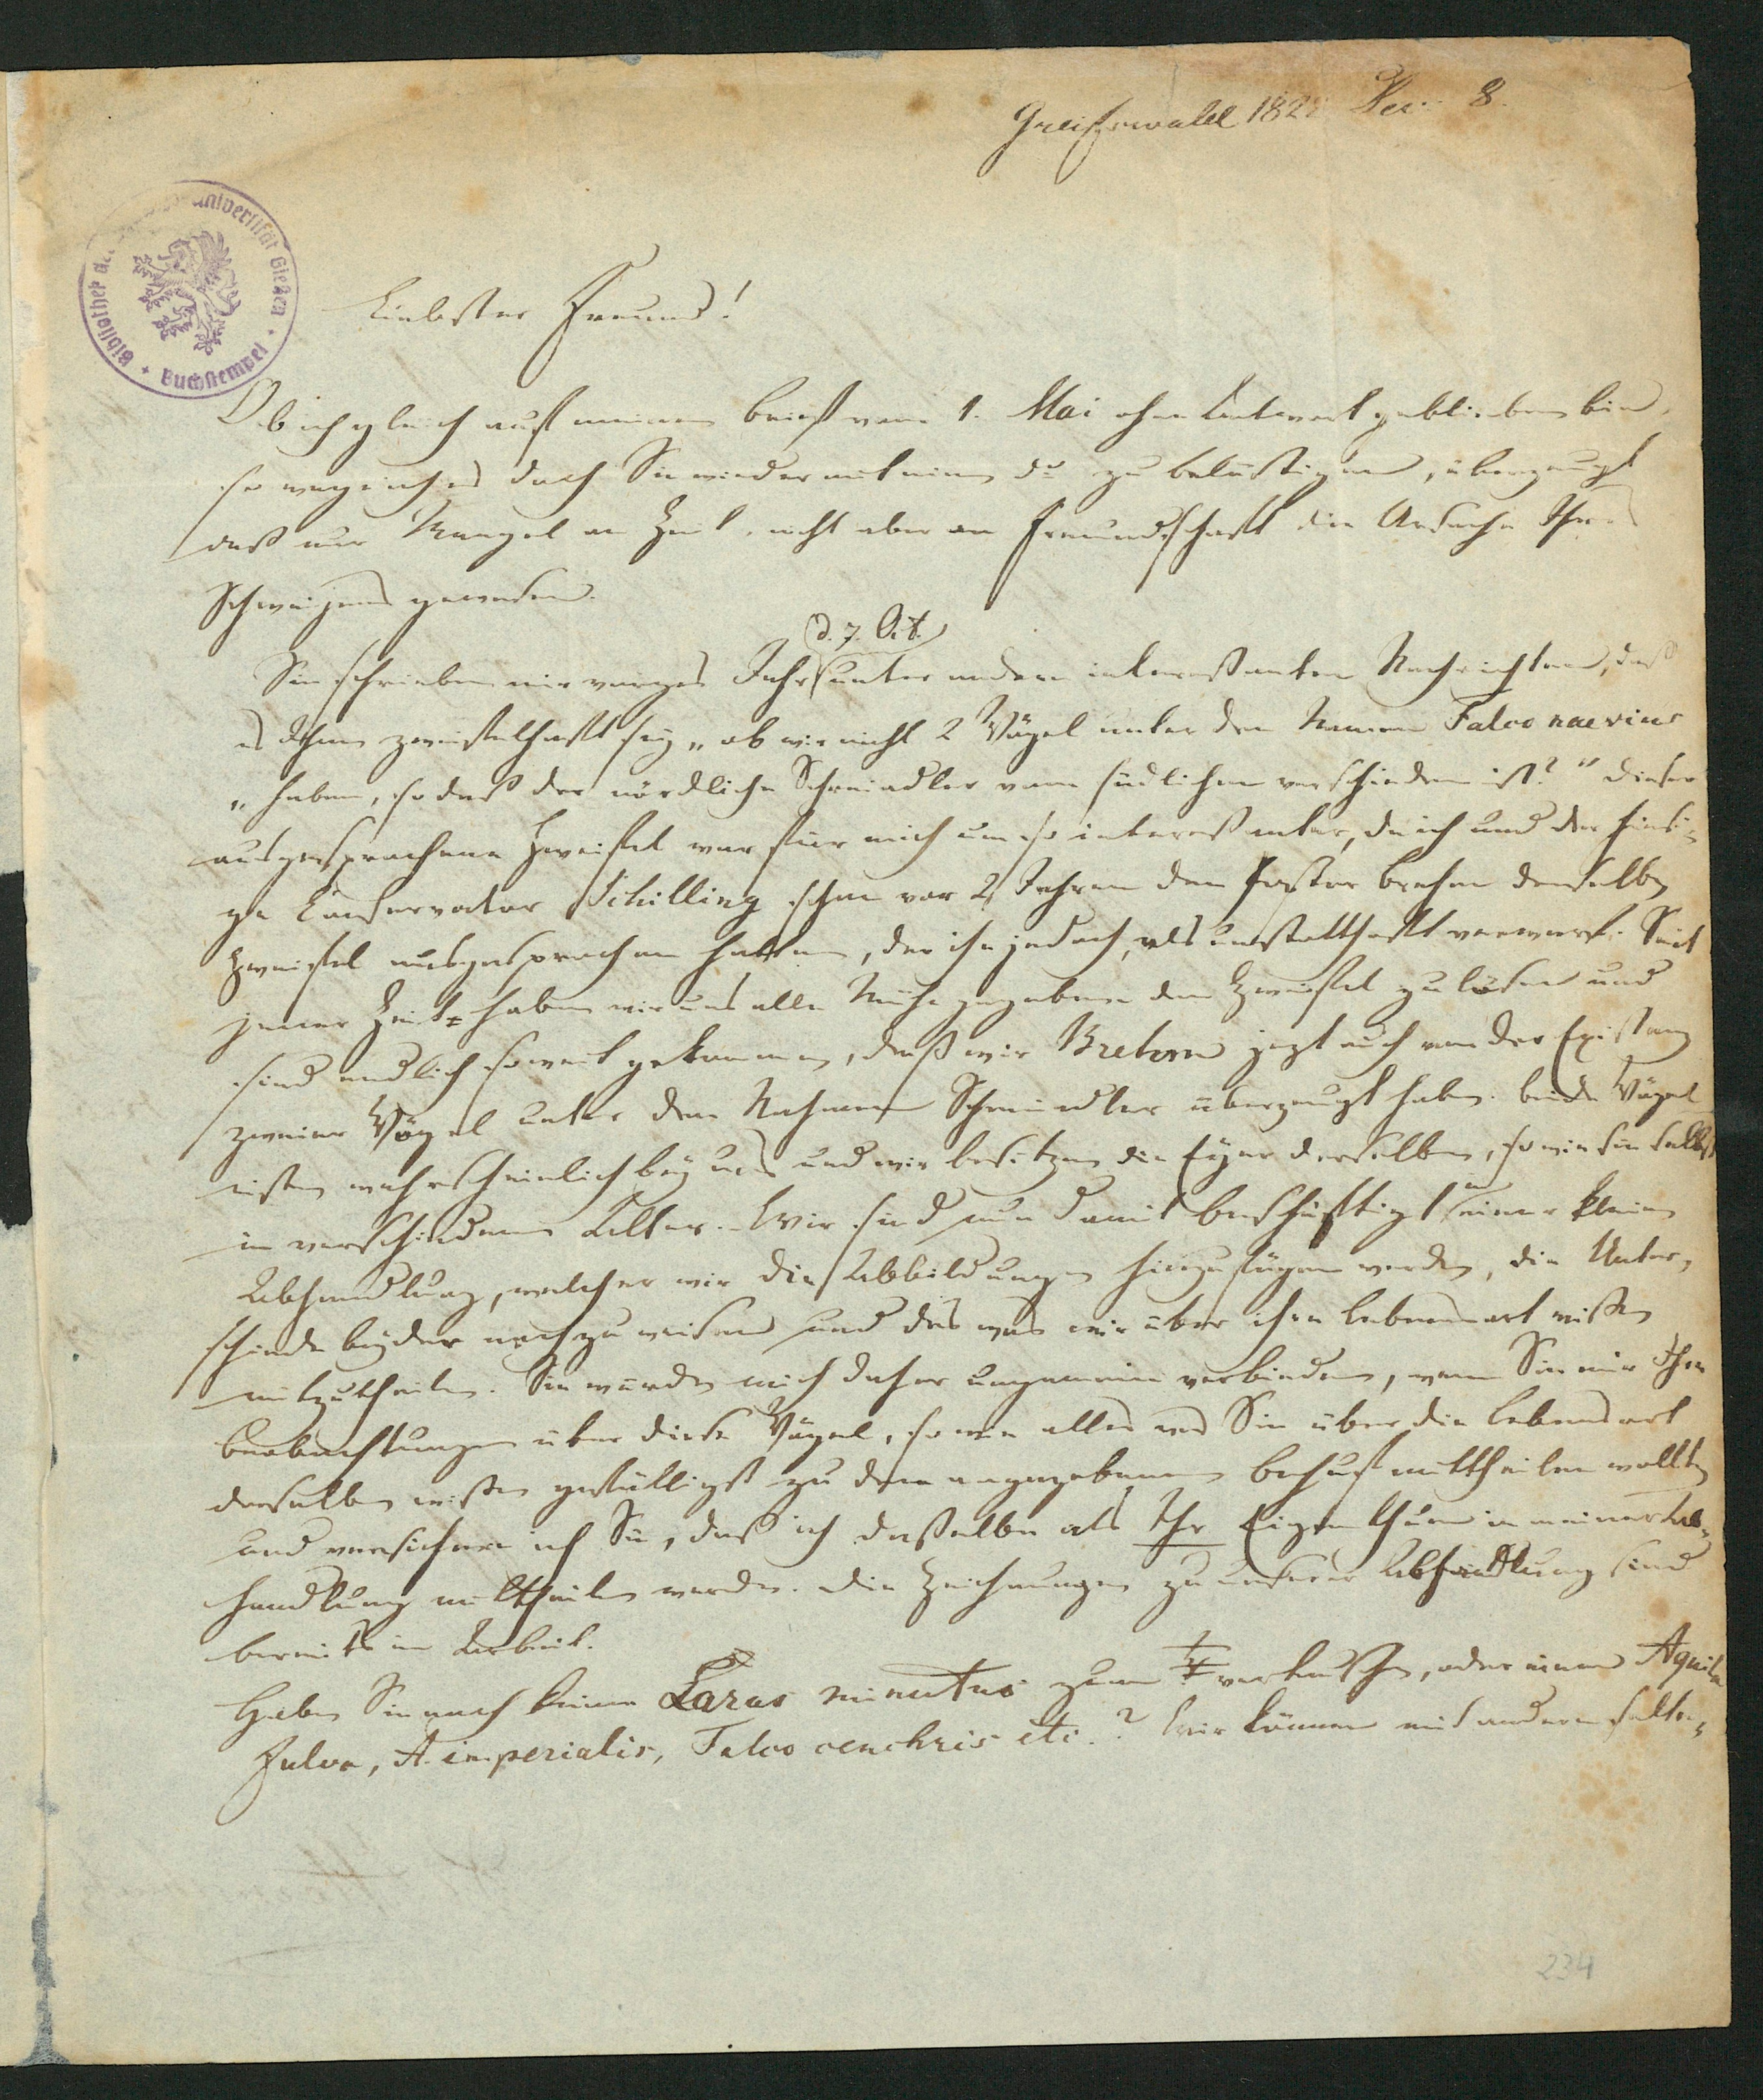 Greifswald 182 Dec. 8.
Bibliothek der Universität Gießen
Buchstempel
Liebster Freund!
Ob ich gleich auf meinen Brief vom 1. Mai ohne Antwort geblieben bin,
so wage ich es doch Sie wieder mit einem do zu belästigen, überzeugt
daß nur Mangel an Zeit, nicht aber an Freundschaft die Ursache Ihres
Schweigens gewesen.
d. 7. Oct.
Sie schrieben mir voriges Jahr unter andern interessanten Nachrichten, daß
es Ihnen zweifelhaft sey „ob wir nicht 2 Vögel unter dem Namen Falco naevius
„haben, so daß der nördliche Schreiadler vom südlichen verschieden ist?“ Dieser
ausgesprochene Zweifel war für mich um so interessanter, da ich und der hiesi-
ge Conservator Schilling schon vor 2 Jahren dem Pastor Brehm denselben
Zweifel ausgesprochen hatten, der ihn jedoch, als unstatthaft verwarf. Seit
jener Zeit haben wir uns alle Mühe gegeben den Zweifel zu lösen und
sind endlich soweit gekommen, daß wir Brehm jezt auch von der Existenz
zweier Vögel unter dem Nahmen Schreiadler überzeugt haben. Beide Vögel
nisten wahrscheinlich bey uns und wir besitzen die Eyer derselben, so wie sie selbst
in verschiedenem Alter. Wir sind nun damit beschäftigt in einer kleinen
Abhandlung, welcher wir die Abbildungen hinzufügen werden, die Unter-
schiede beyder nachzuweisen und das was wir über ihre Lebensart wissen
mitzutheilen. Sie würden mich daher ungemein verbinden, wenn Sie mir Ihre
Beobachtungen über diese Vögel, so wie alles was Sie über die Lebensart
derselben wissen gefälligst zu dem angegebenen Behuf mittheilen wollten
und versichere ich Sie, daß ich dasselbe als Ihr Eigenthum in meiner Ab-
handlung mittheilen werde. Die Zeichnungen zu unserer Abhandlung sind
bereits in Arbeit.
Haben Sie noch keinen Larus minutus zum vertauschen, oder einen Aquila
fulva, A. imperialis, Falco cenchris etc.? Wir können mit andern selte-
234